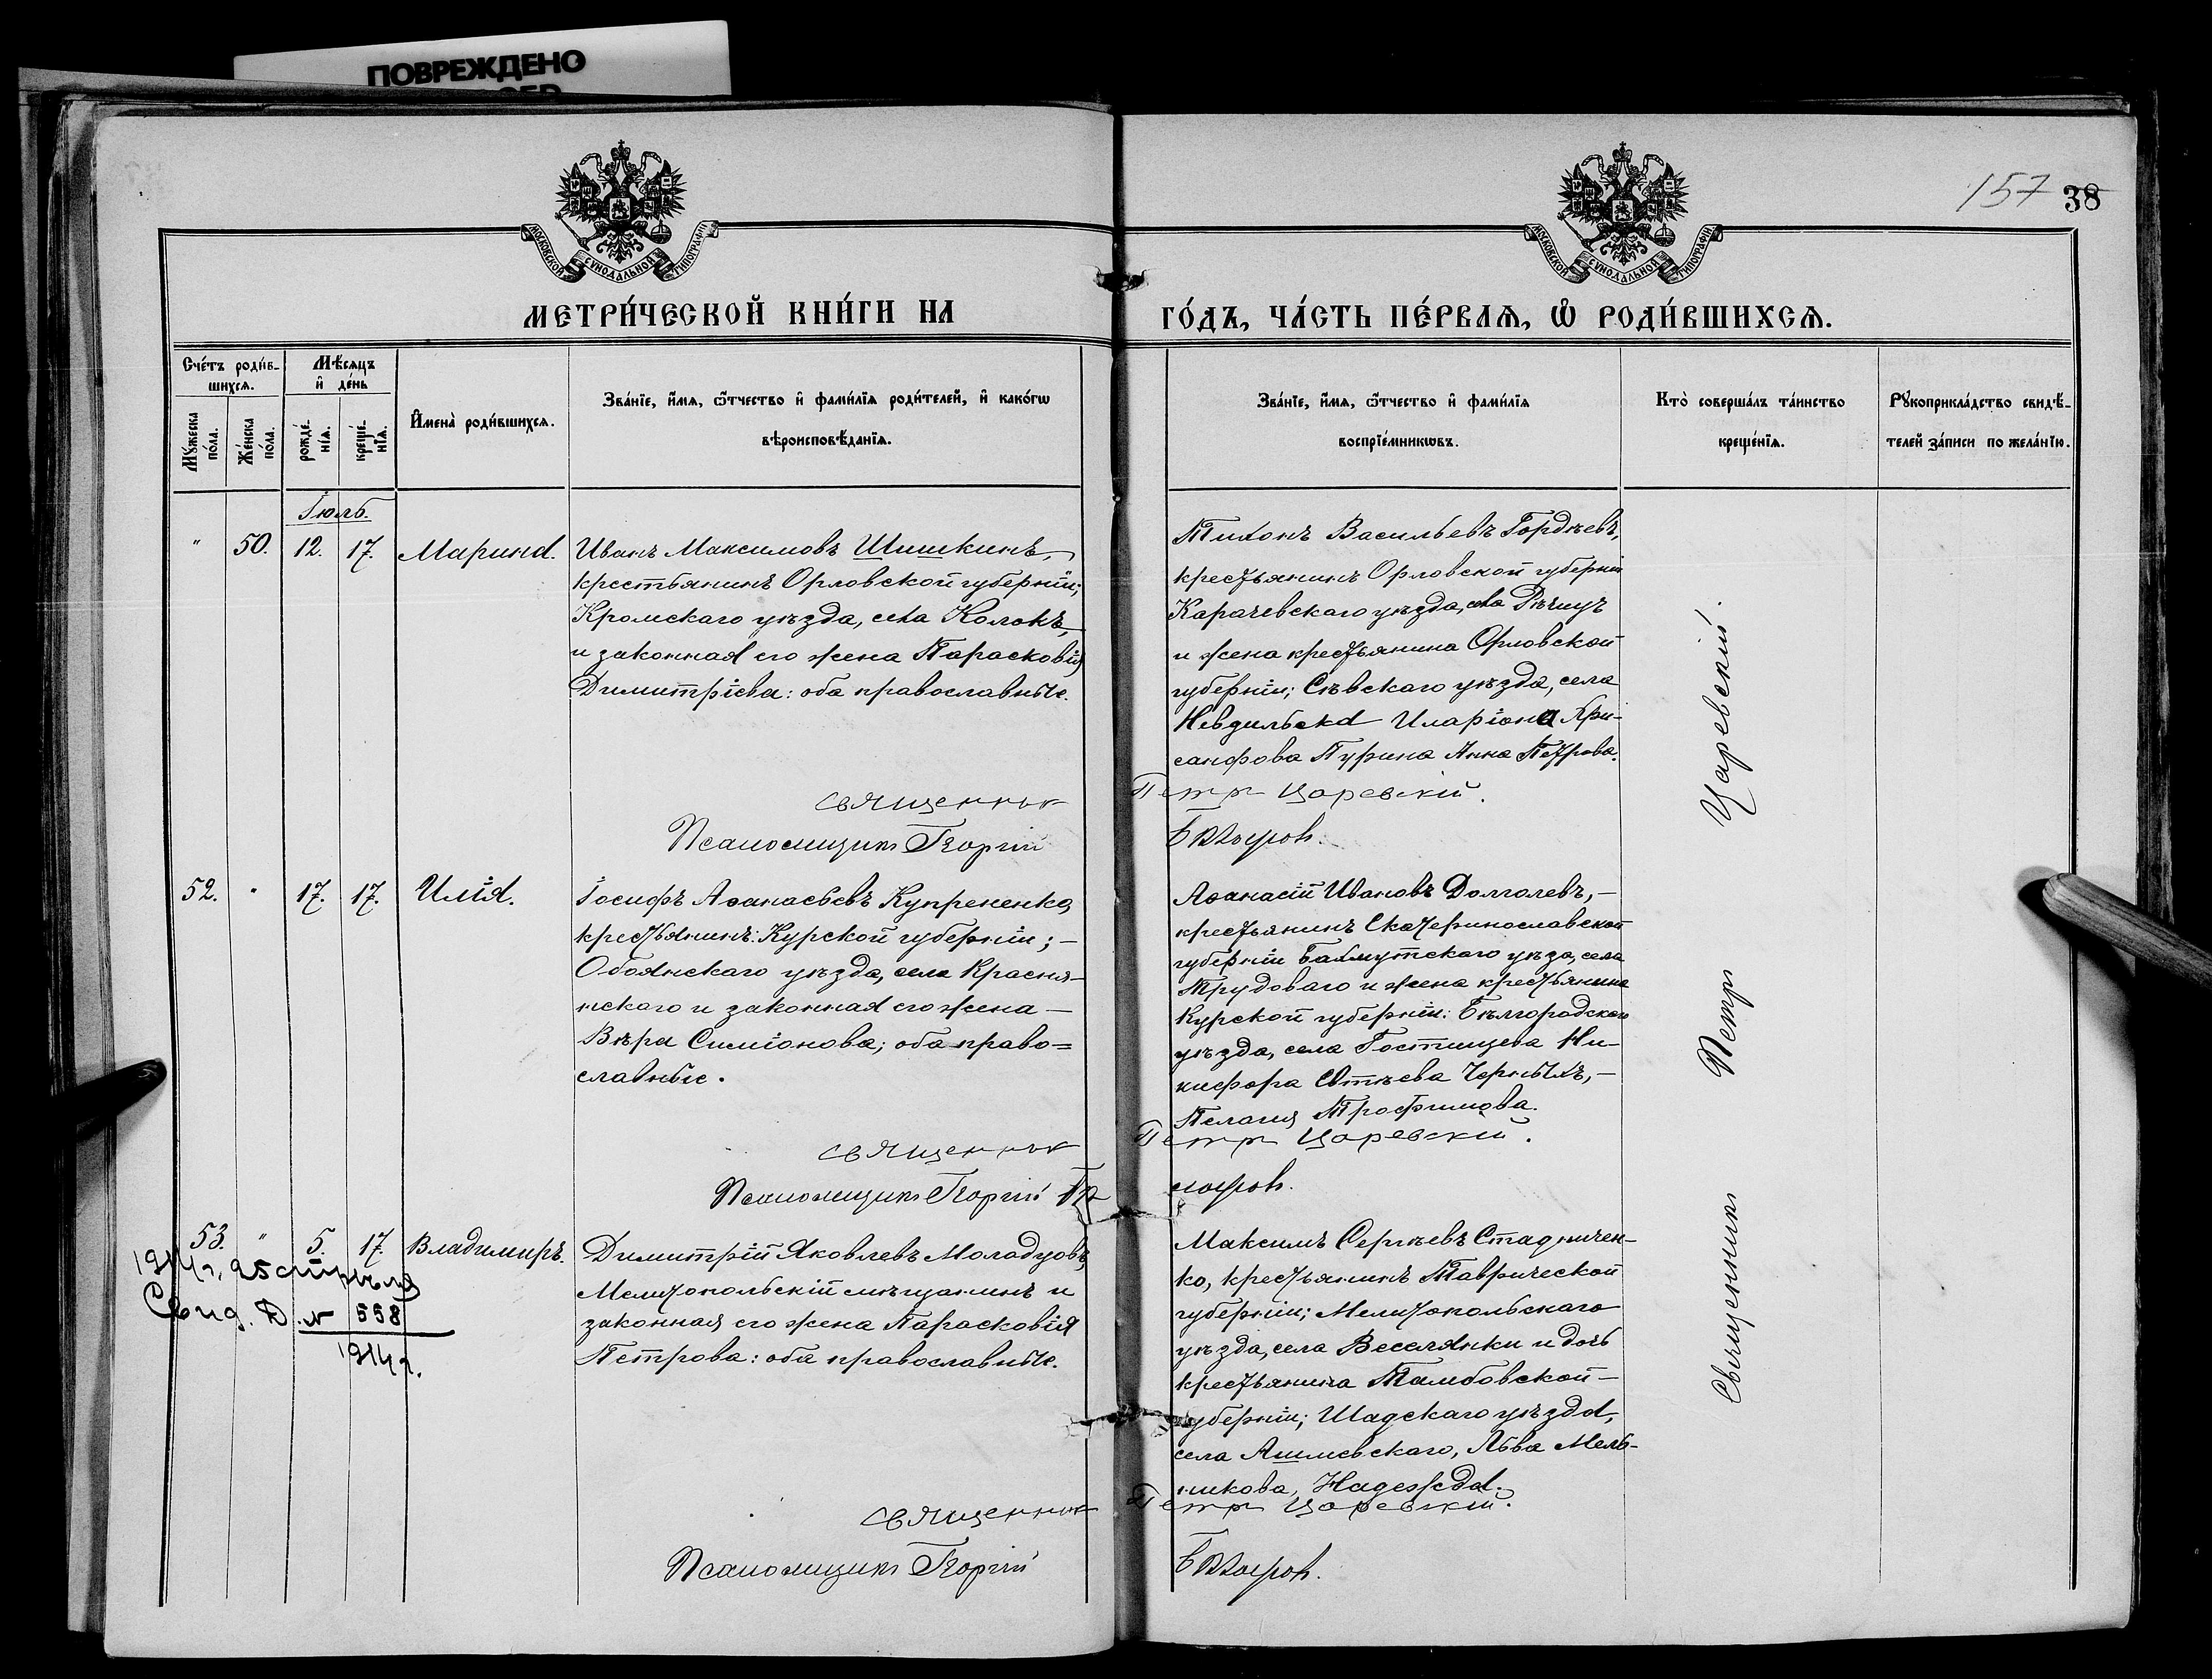 ПОВРЕЖДЕНО
157 38
МОСКОВСКОЙ СУНОДАЛЬНОЙ ТИПОГРАФІИ
МОСКОВСКОЙ СУНОДАЛЬНОЙ ТИПОГРАФІИ
МЕТРИ́ЧЕСКОЙ КНИ́ГИ НА
ГО́ДЪ, ЧА́СТЬ ПЕ́РВАѦ, Ѡ҆ РОДИ́ВШИХСѦ.
Сче́тъ роди́в-
шихсѧ.
Мꙋ́жеска по́ла.
Же́нска по́ла.
Мѣ́сѧцъ
и҆ де́нь
рожде́-
нїѧ.
креще́-
нїѧ.
И҆мена̀ роди́вшихсѧ.
Зва́нїе, и҆́мѧ, ѻ҆́тчество и҆ фами́лїѧ роди́телей, и҆ како́гѡ
вѣроисповѣ́данїѧ.
Зва́нїе, и҆́мѧ, ѻ҆́тчество и҆ фами́лїѧ
воспрїе́мникѡвъ.
Кто̀ соверша́лъ та́инство
креще́нїѧ.
Рꙋкоприкла́дство свидѣ́-
телей за́писи по жела́нїю.
Іюль.
" 50. 12. 17. Марина.
Иванъ Максимовъ Шишкинъ,
крестьянинъ Орловской губерніи;
Кромскаго уѣзда, села Колокъ,
и законная его жена Парасковія
Димитріева: оба православные.
священник
Псаломщикъ Георгій
Тихонъ Васильевъ Гордѣевъ,
крестьянинъ Орловской губерніи
Карачевскаго уѣзда, села
и жена крестьянина Орловской
губерніи; Сѣвскаго уѣзда, села
Иларіона Хри-
санфова Пурина Анна Петрова.
Петръ Царевскій.
52. " 17. 17. Илія.
Іосифъ Аѳанасьевъ Купрененко,
крестьянинъ: Курской губерніи; –
Обоянскаго уѣзда, села Красня-
нскаго и законная его жена –
Вѣра Симіонова; оба право=
славные.
священник
Псаломщикъ Георгій
Аѳанасій Ивановъ Долголевъ, –
крестьянинъ Екатеринославской
губерніи Бахмутскаго уѣзда, села
Трудоваго и жена крестьянина
Курской губерніи: Бѣлгородскаго
уѣзда, села Гостищева Ни-
кифора Евтѣева Черныхъ, –
Пелагия Трофимова.
Петръ Царевскій.
53. " 5. 17. Владимиръ.
1914 г. 25 апрѣля
Свид. Д. № 558
1914 г.
Димитрій Яковлевъ Моладцовъ,
Мелитопольскій мѣщанинъ и
законная его жена Парасковія
Петрова: оба православные.
священник
Псаломщикъ Георгій
Максимъ Сергѣевъ Стадничен-
ко, крестьянинъ Таврической
губерніи; Мелитопольскаго
уѣзда, села Веселянки и дочь
крестьянина Тамбовской –
губерніи; Шацскаго уѣзда,
села Льва Мель-
никова, Надежда.
Петръ Царевскій.
Священникъ Петръ Царевскій.